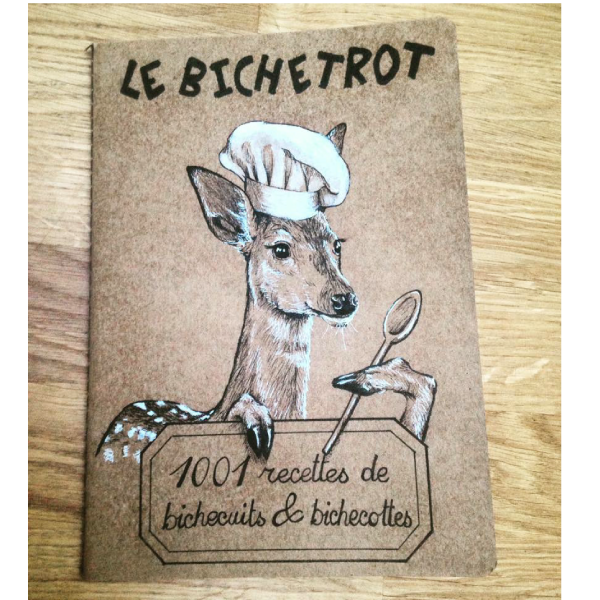 LE BICHETROT
1001 recettes de
bichecuits & bichecottes